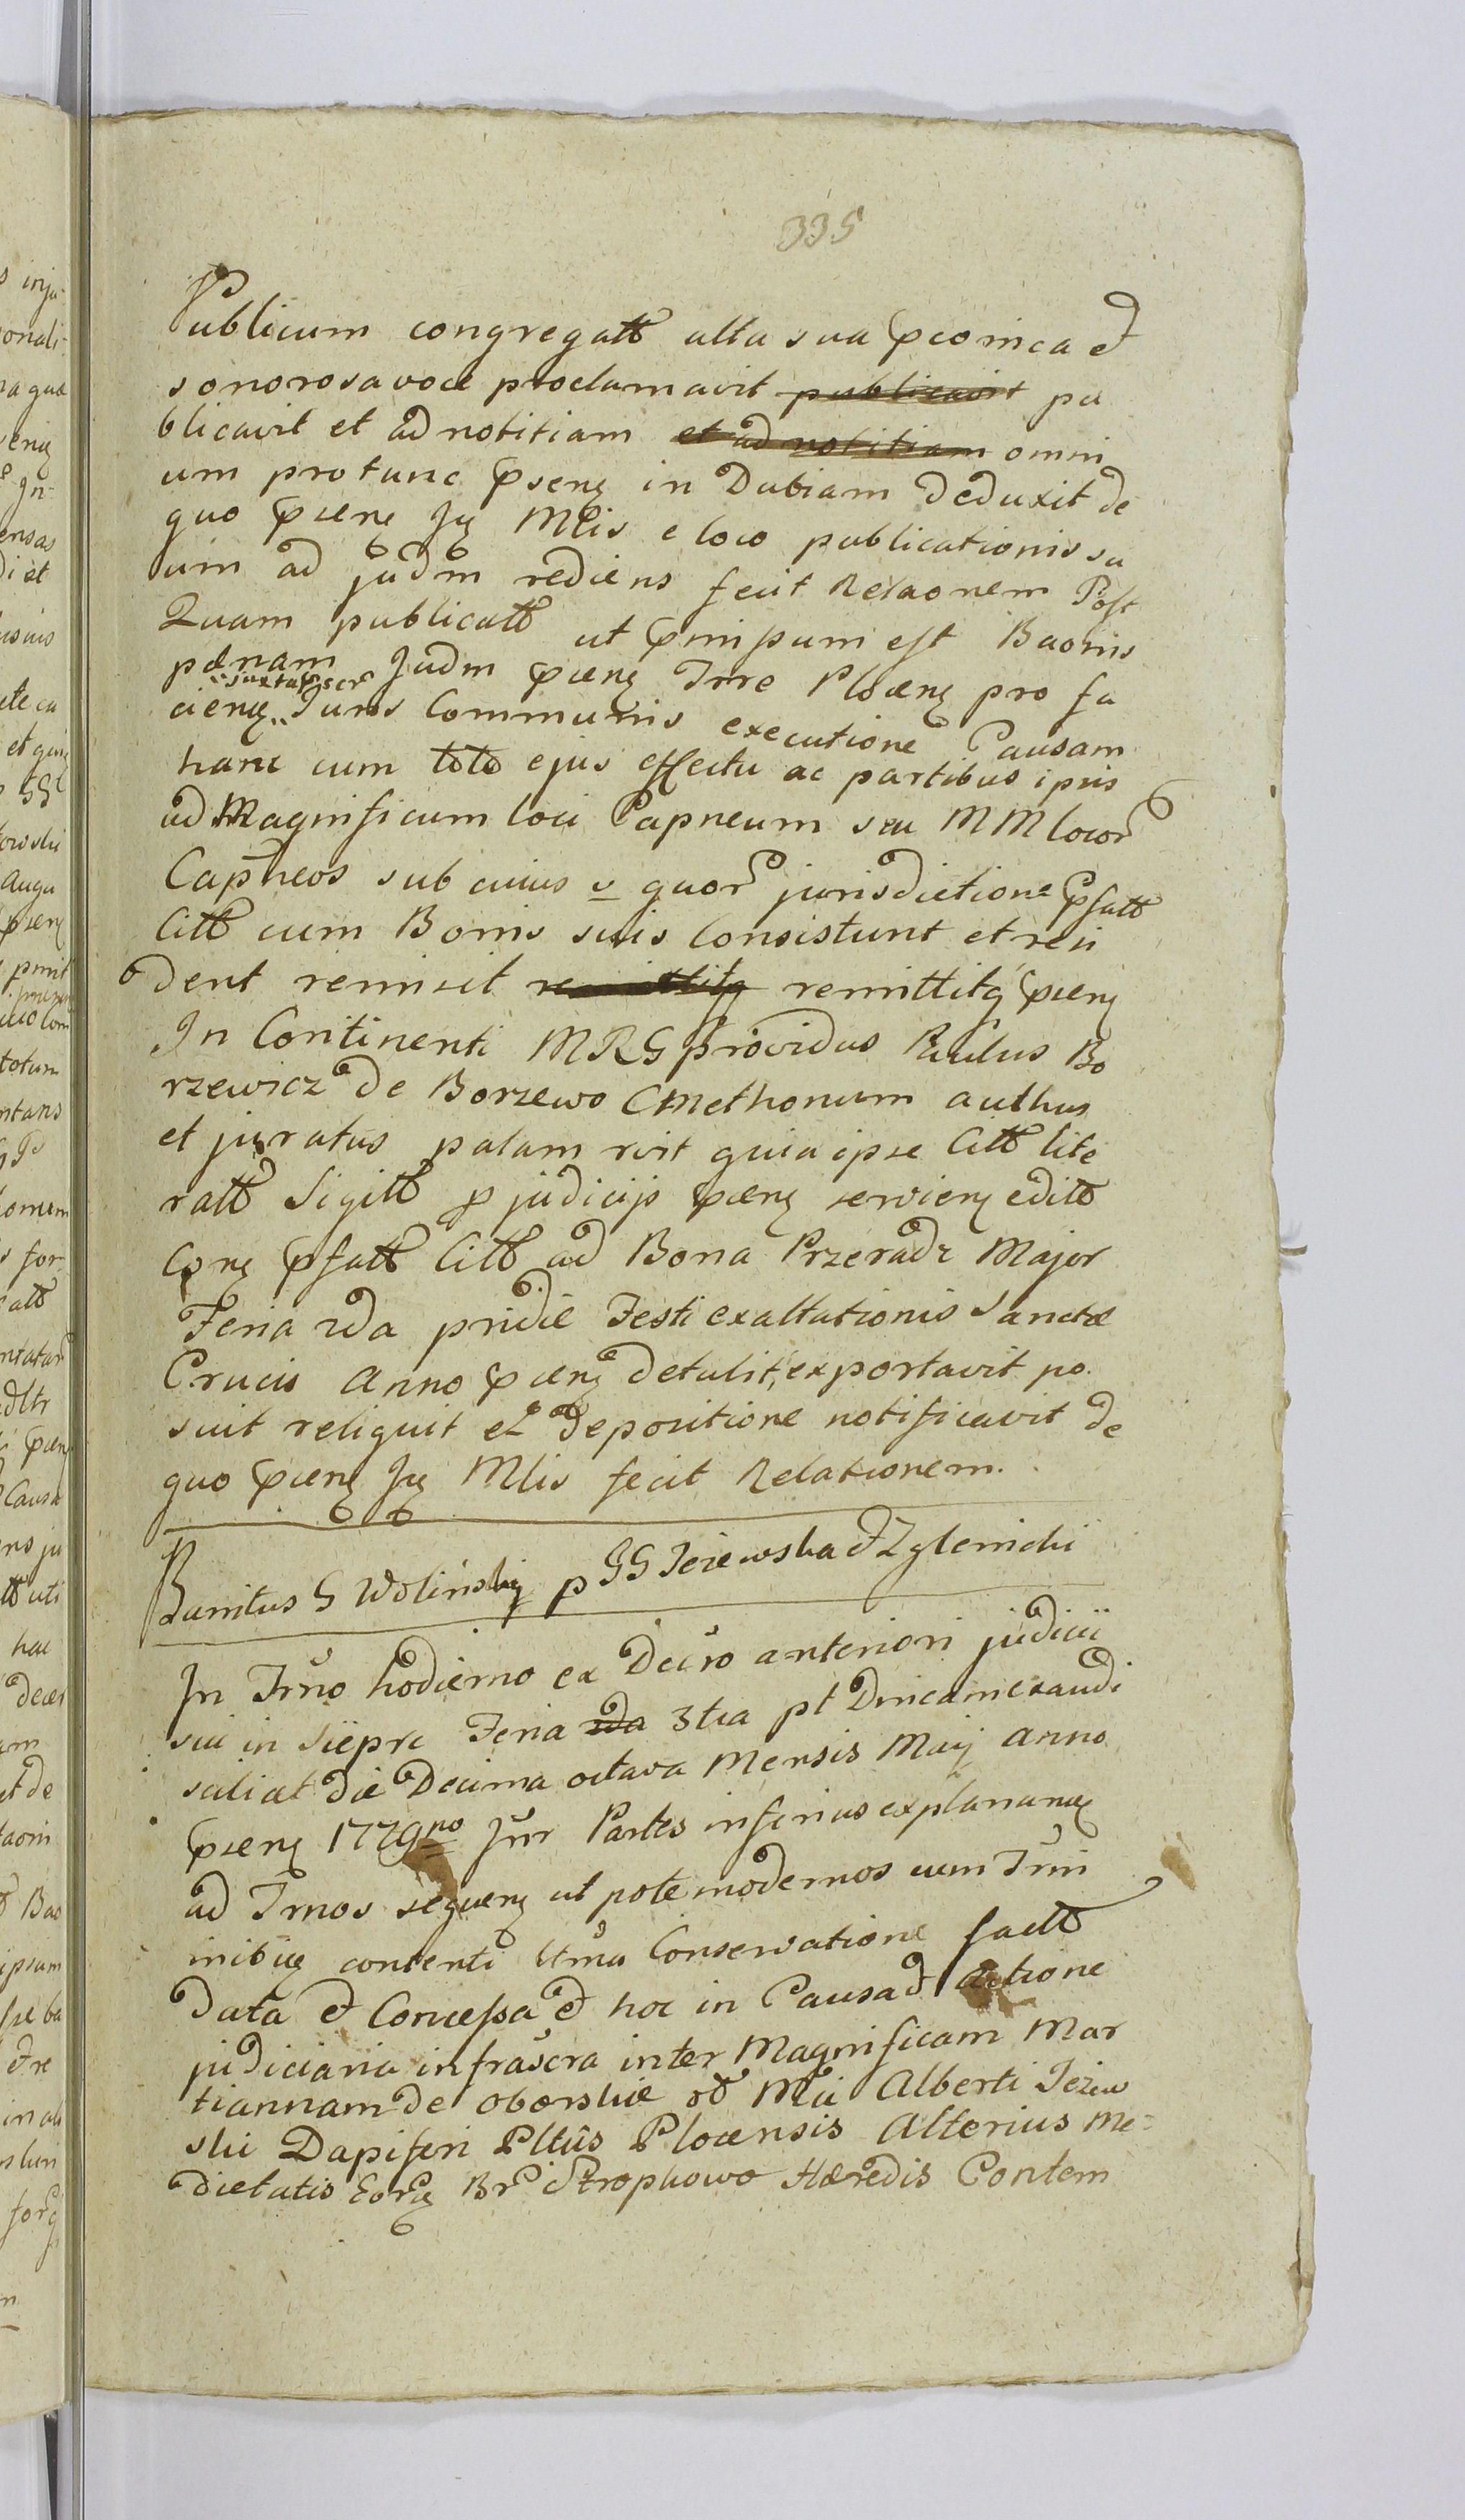 335
Publicum congregatt alta sua pconica et
sonorosa voce proclamavit publicavit pu
blicavit et ad notitiam et ad notitiam omni
um pro tunc pseng in Dubiam deduxit de
quo psens Jg Mlis e loco publicationis su
um ad judm rediens fecit Relaonem Post
Quam publicatt ut pmissum est Baonis
pænam Judm pseng Trre Plocens pro fa
ciens juxta pscr Juris Communis executione Causam
hanc cum toto ejus effectu ac partibus ipsis
ad Magnificum loci Capneum seu MM locor
Capneos sub cuius v quor jurisdictione psatt
Citt cum Bonis suis Consistunt et resi
dent remisit remittitq remittitq pseng
In Continenti MRG providus Paulus Bo
rzewicz de Borzewo CMethonum authus
et juratus palam rvit quia ipse Citt lite
ratt Sigitt p judicijs pseng servieng edito
Cong psatt Citt ad Bona Przeradz Major
Feria 2da pridie Festi exaltationis Sanctæ
Crucis Anno pseng detulit, exportavit po
suit reliquit et de positione notificavit de
quo pseng Jg Mlis fecit Relationem.
Banitus G Wolinskij p GG Jezewska et Zglenicki
In Trno hodierno ex Decro anteriori judicii
sui in Sieprc Feria 2da 3tia pt Dnicam exaudi
scilicet die Decima octava Mensis Maij Anno
pseng 1779no Inr Partes inferius explanang
ad Trnos sequeng ut pote modernos cum Trni
inibiq contenti Conservatione factt
data et Concessa et hoc in Causa et Actione
judiciaria infrascra inter Magnificam Mar
tiannam de oborskie Mci Alberti Jezew
ski Dapiferi Pltûs Plocensis Alterius Me=
dietatis Eorq Br Stropkowo Hæredis Contem